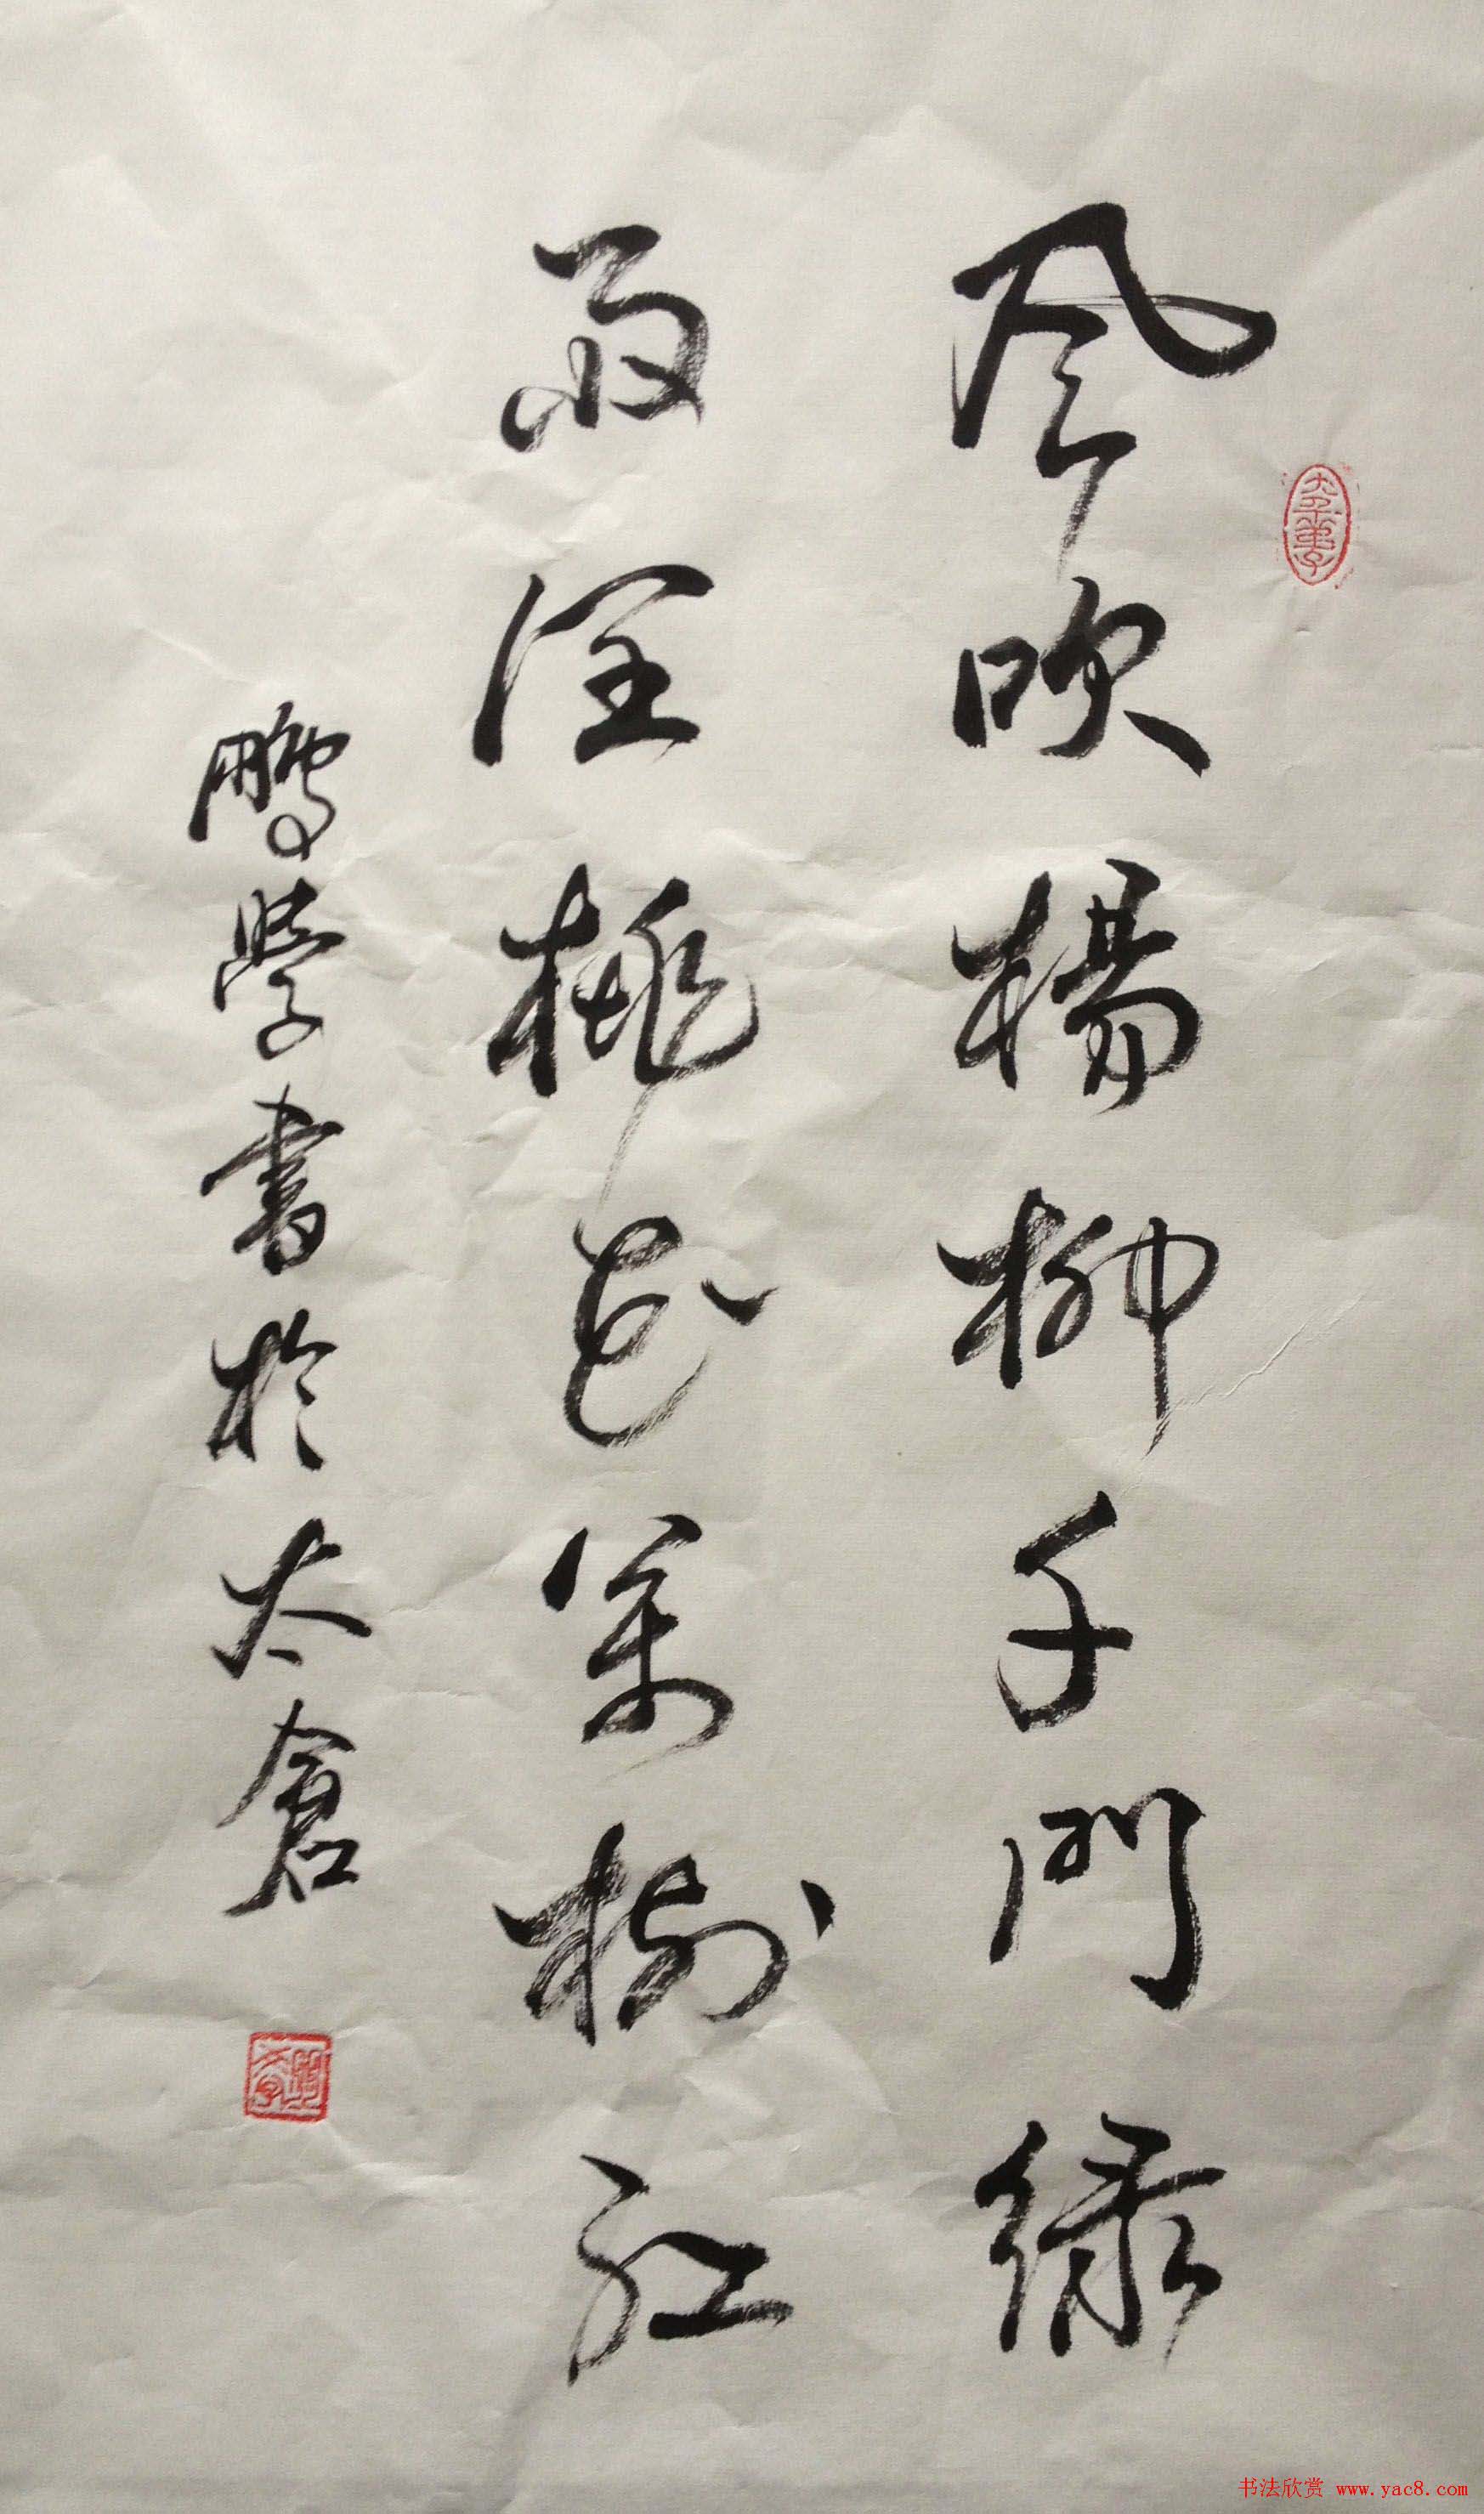 风吹楊柳千門绿
雨润桃花萬樹红
鹏學書於太倉
书法欣赏 www.yac8.com